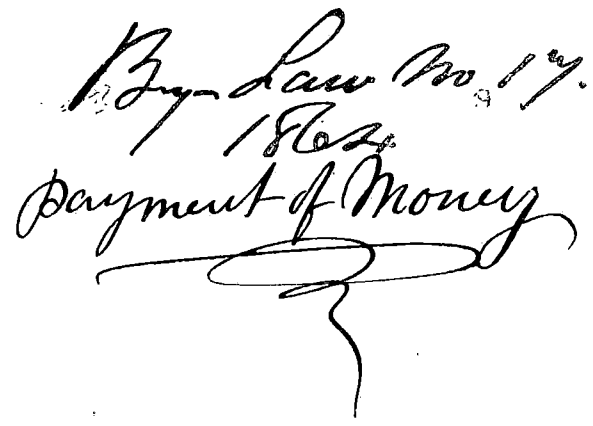 By-Law No. 17.
1862.
payment of Money